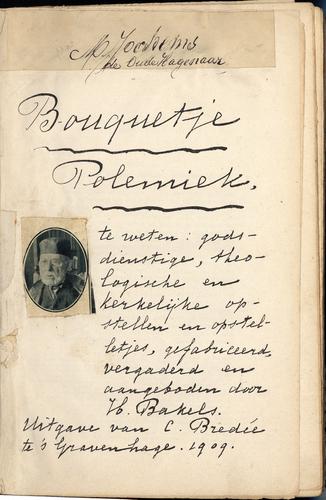 M. Jochems
de Oude Hagenaar
Bouquetje
Polemiek,
te weten: gods-
dienstige, theo-
logische en
kerkelijke op-
stellen en opstel-
letjes, gefabriceerd,
vergaderd en
aangeboden door
H. Bakels.
Uitgave van C. Bredée
te 's Gravenhage. 1909.